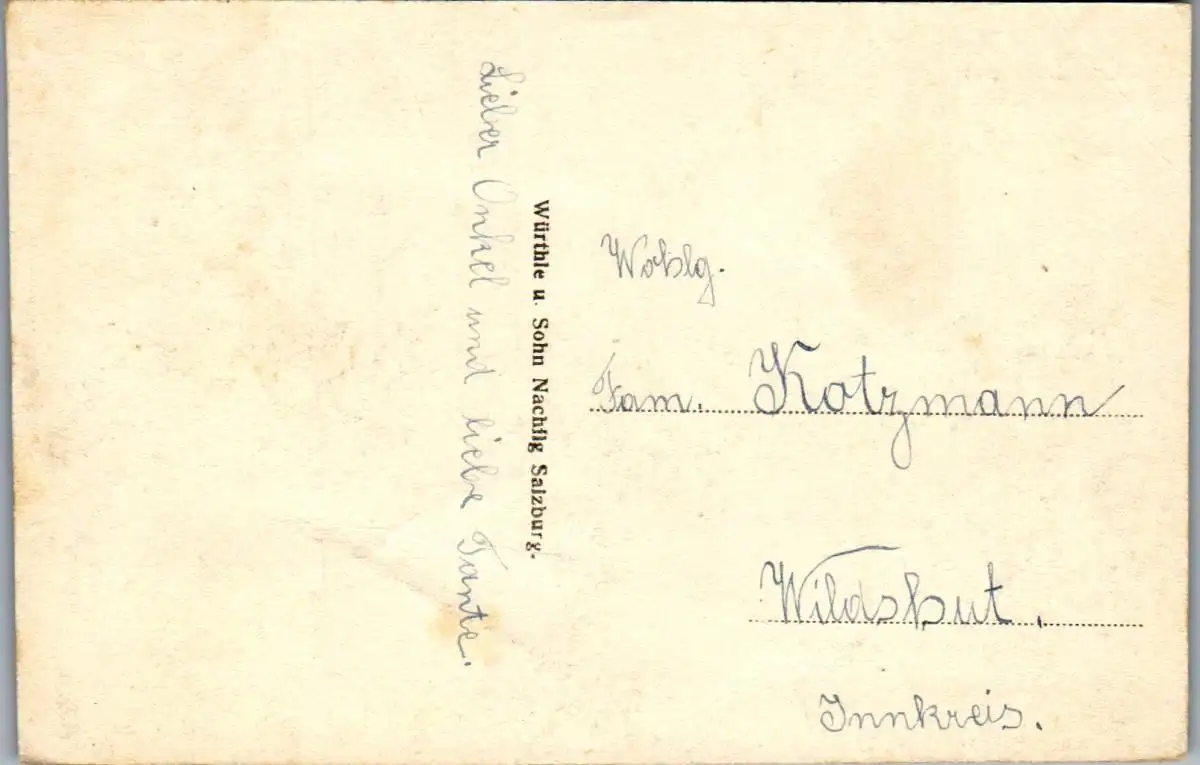 Lieber Onkel und liebe Tante.
Würthle u. Sohn Nachflg Salzburg.
Wohlg.
Fam. Katzmann
Wildshut.
Innkreis.